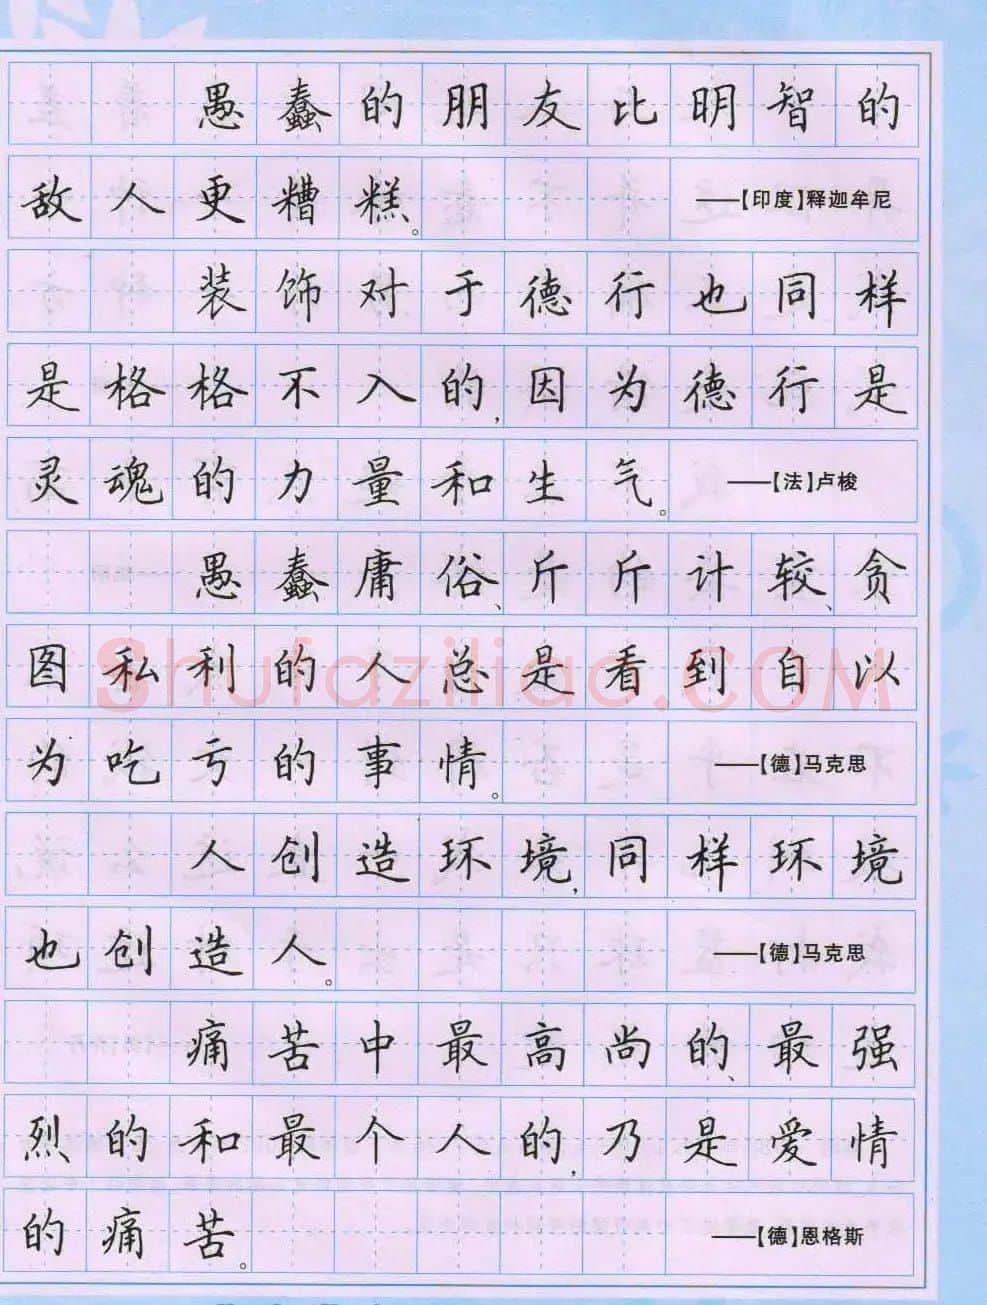 愚蠢的朋友比明智的
敌人更糟糕。 ——【印度】释迦牟尼
装饰对于德行也同样
是格格不入的,因为德行是
灵魂的力量和生气。 ——【法】卢梭
愚蠢庸俗、斤斤计较、贪
图私利的人总是看到自以
为吃亏的事情。 ——【德】马克思
人创造环境,同样环境
也创造人。 ——【德】马克思
痛苦中最高尚的、最强
烈的和最个人的,乃是爱情
的痛苦。 ——【德】恩格斯
Shufaziliao.COM